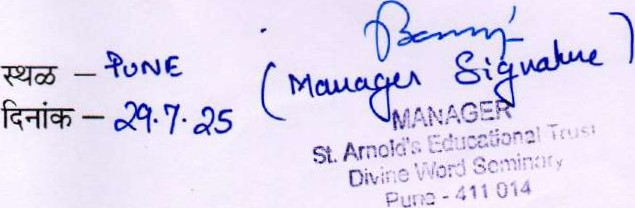 स्थळ – PUNE
दिनांक – 29.7.25
(Manager Signature)
MANAGER
St. Arnold's Educational Trust
Divine Word Seminary
Pune - 411 014